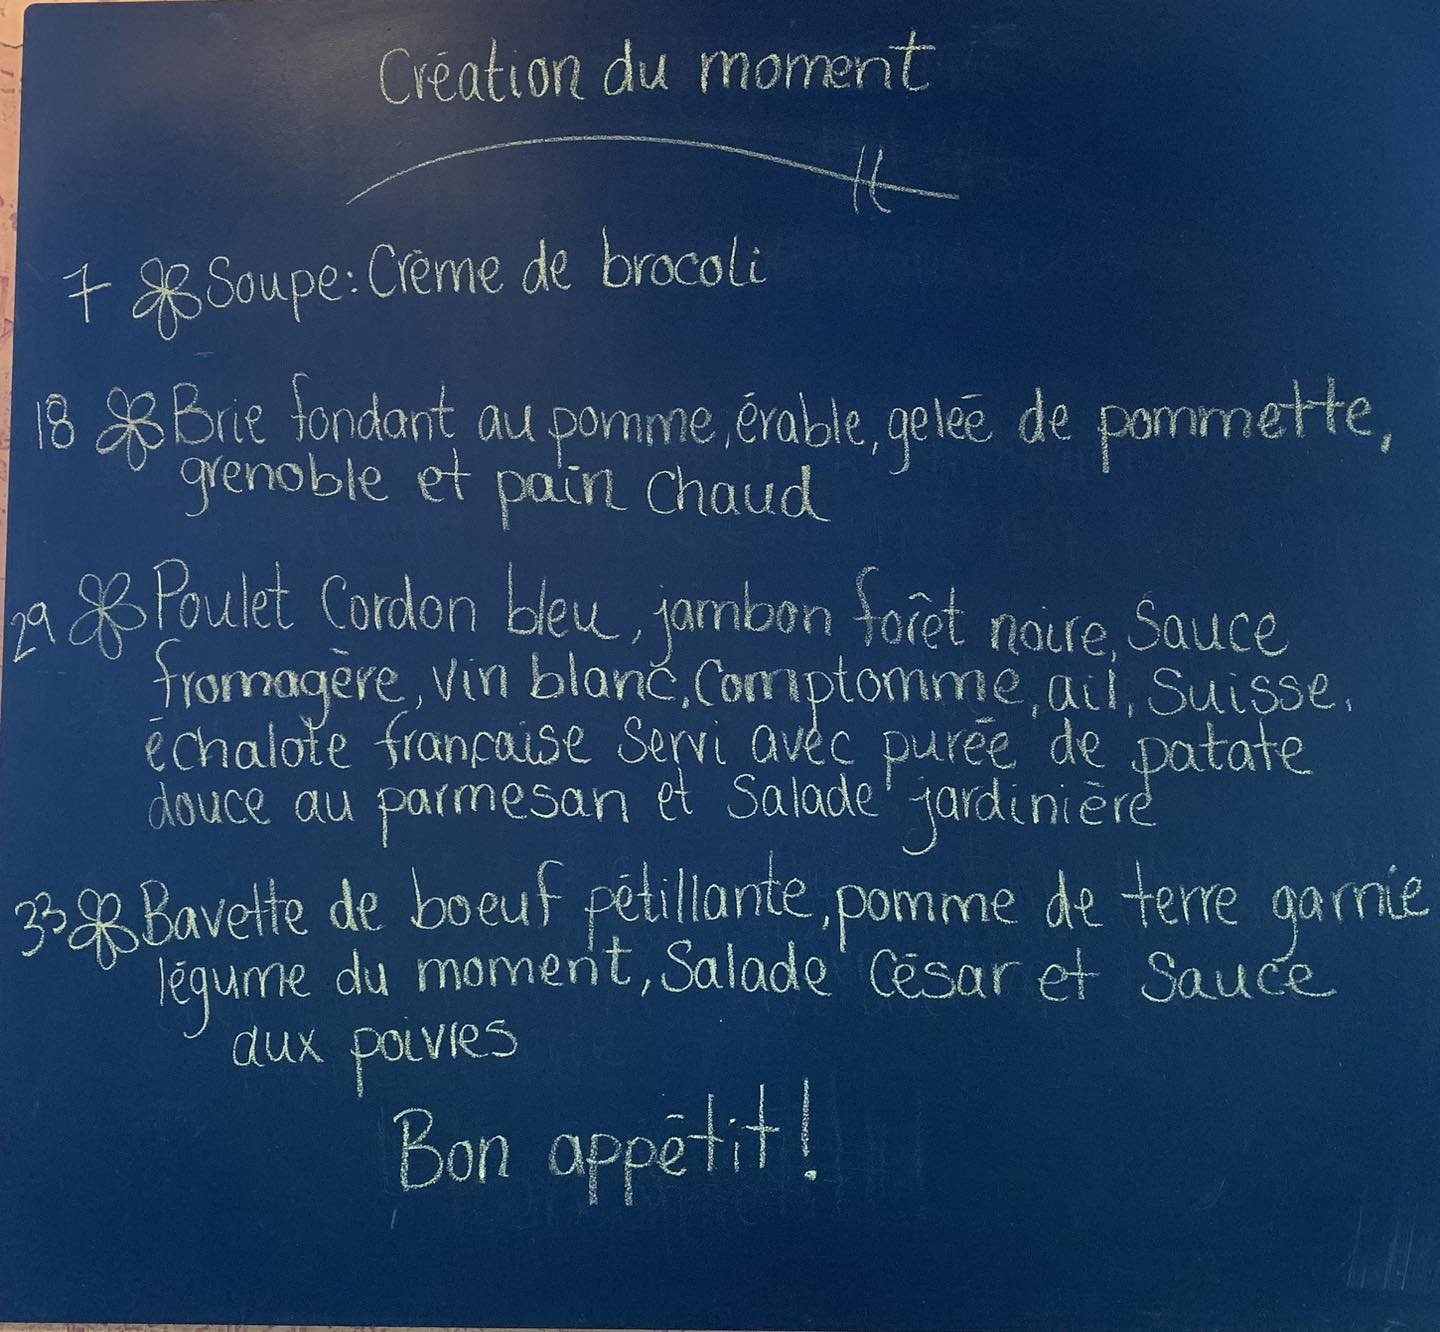 Création du moment
7 Soupe: Crème de brocoli
18 Brie fondant au pomme, érable, geleé de pommette,
grenoble et pain chaud
29 Poulet Cordon bleu, jambon forêt noire, Sauce
fromagère, vin blanc, Comptomme, ail, Suisse,
échalote française Servi avec purée de patate
douce au parmesan et Salade jardinière
33 Bavette de boeuf pétillante, pomme de terre garnie
légume du moment, Salade César et Sauce
aux poivres
Bon appétit!